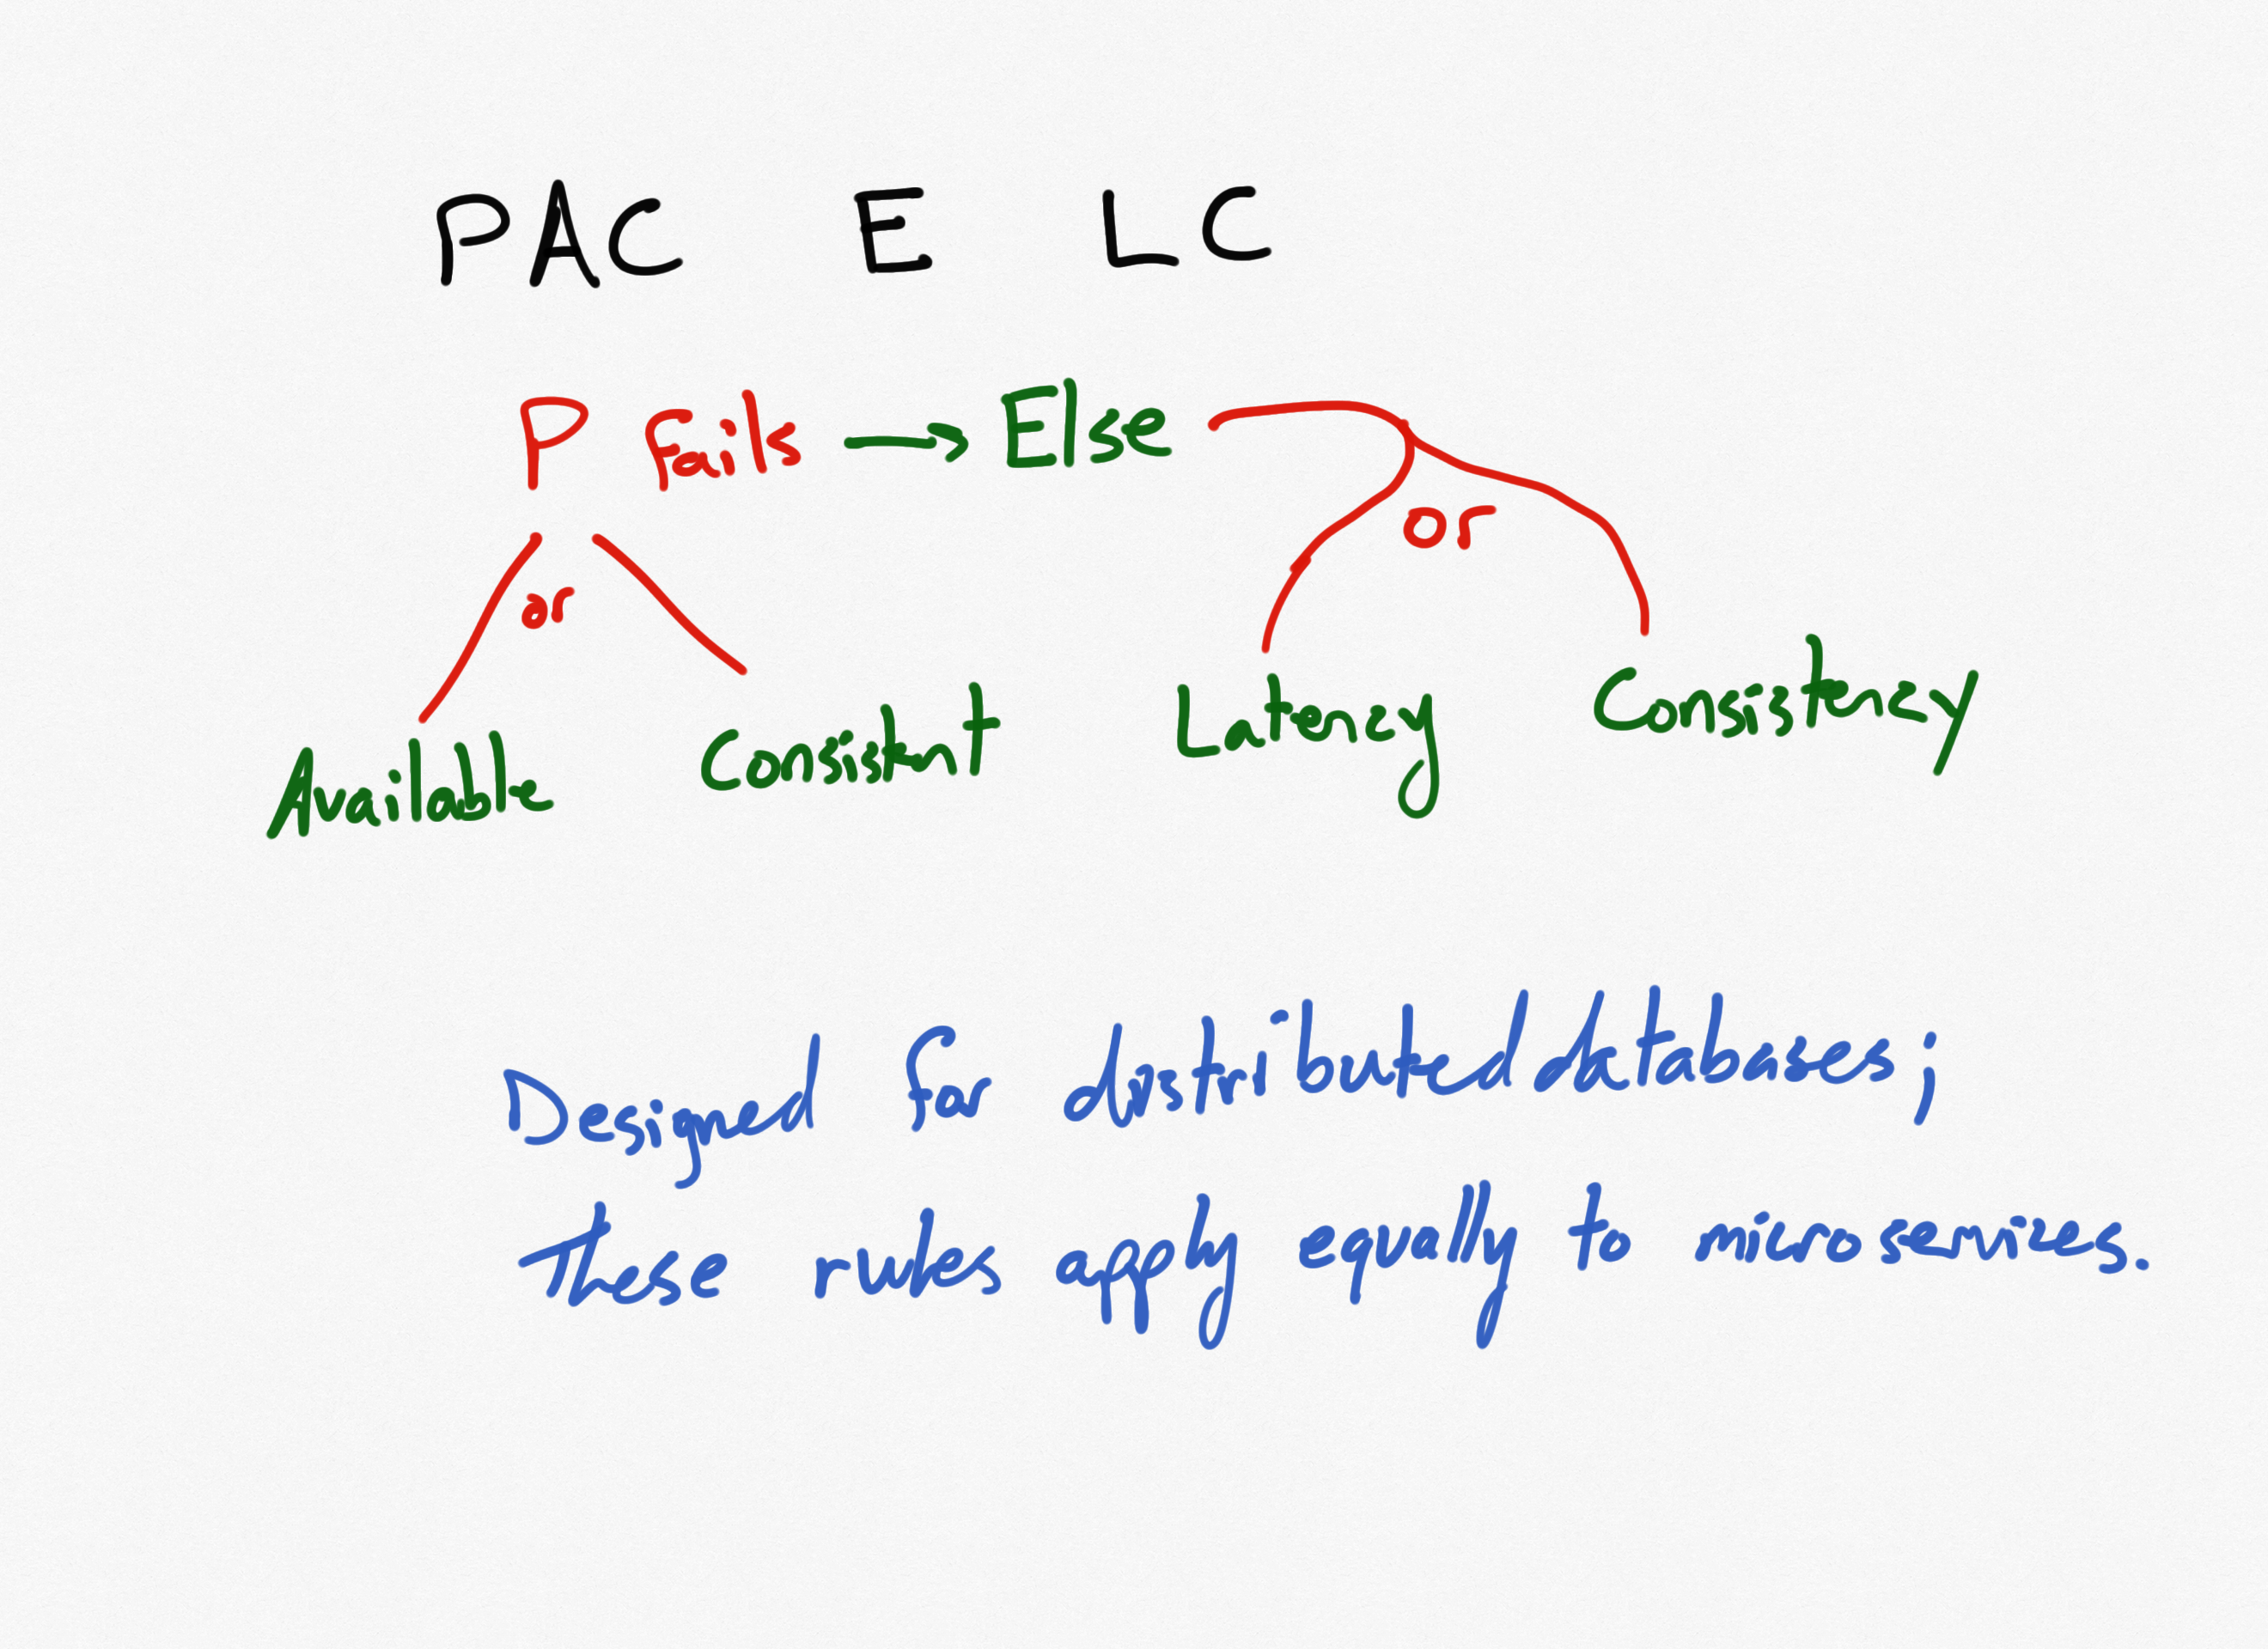 PAC E LC
P fails → Else
or
or
Available Consistent Latency Consistency
Designed for distributed databases;
these rules apply equally to microservices.